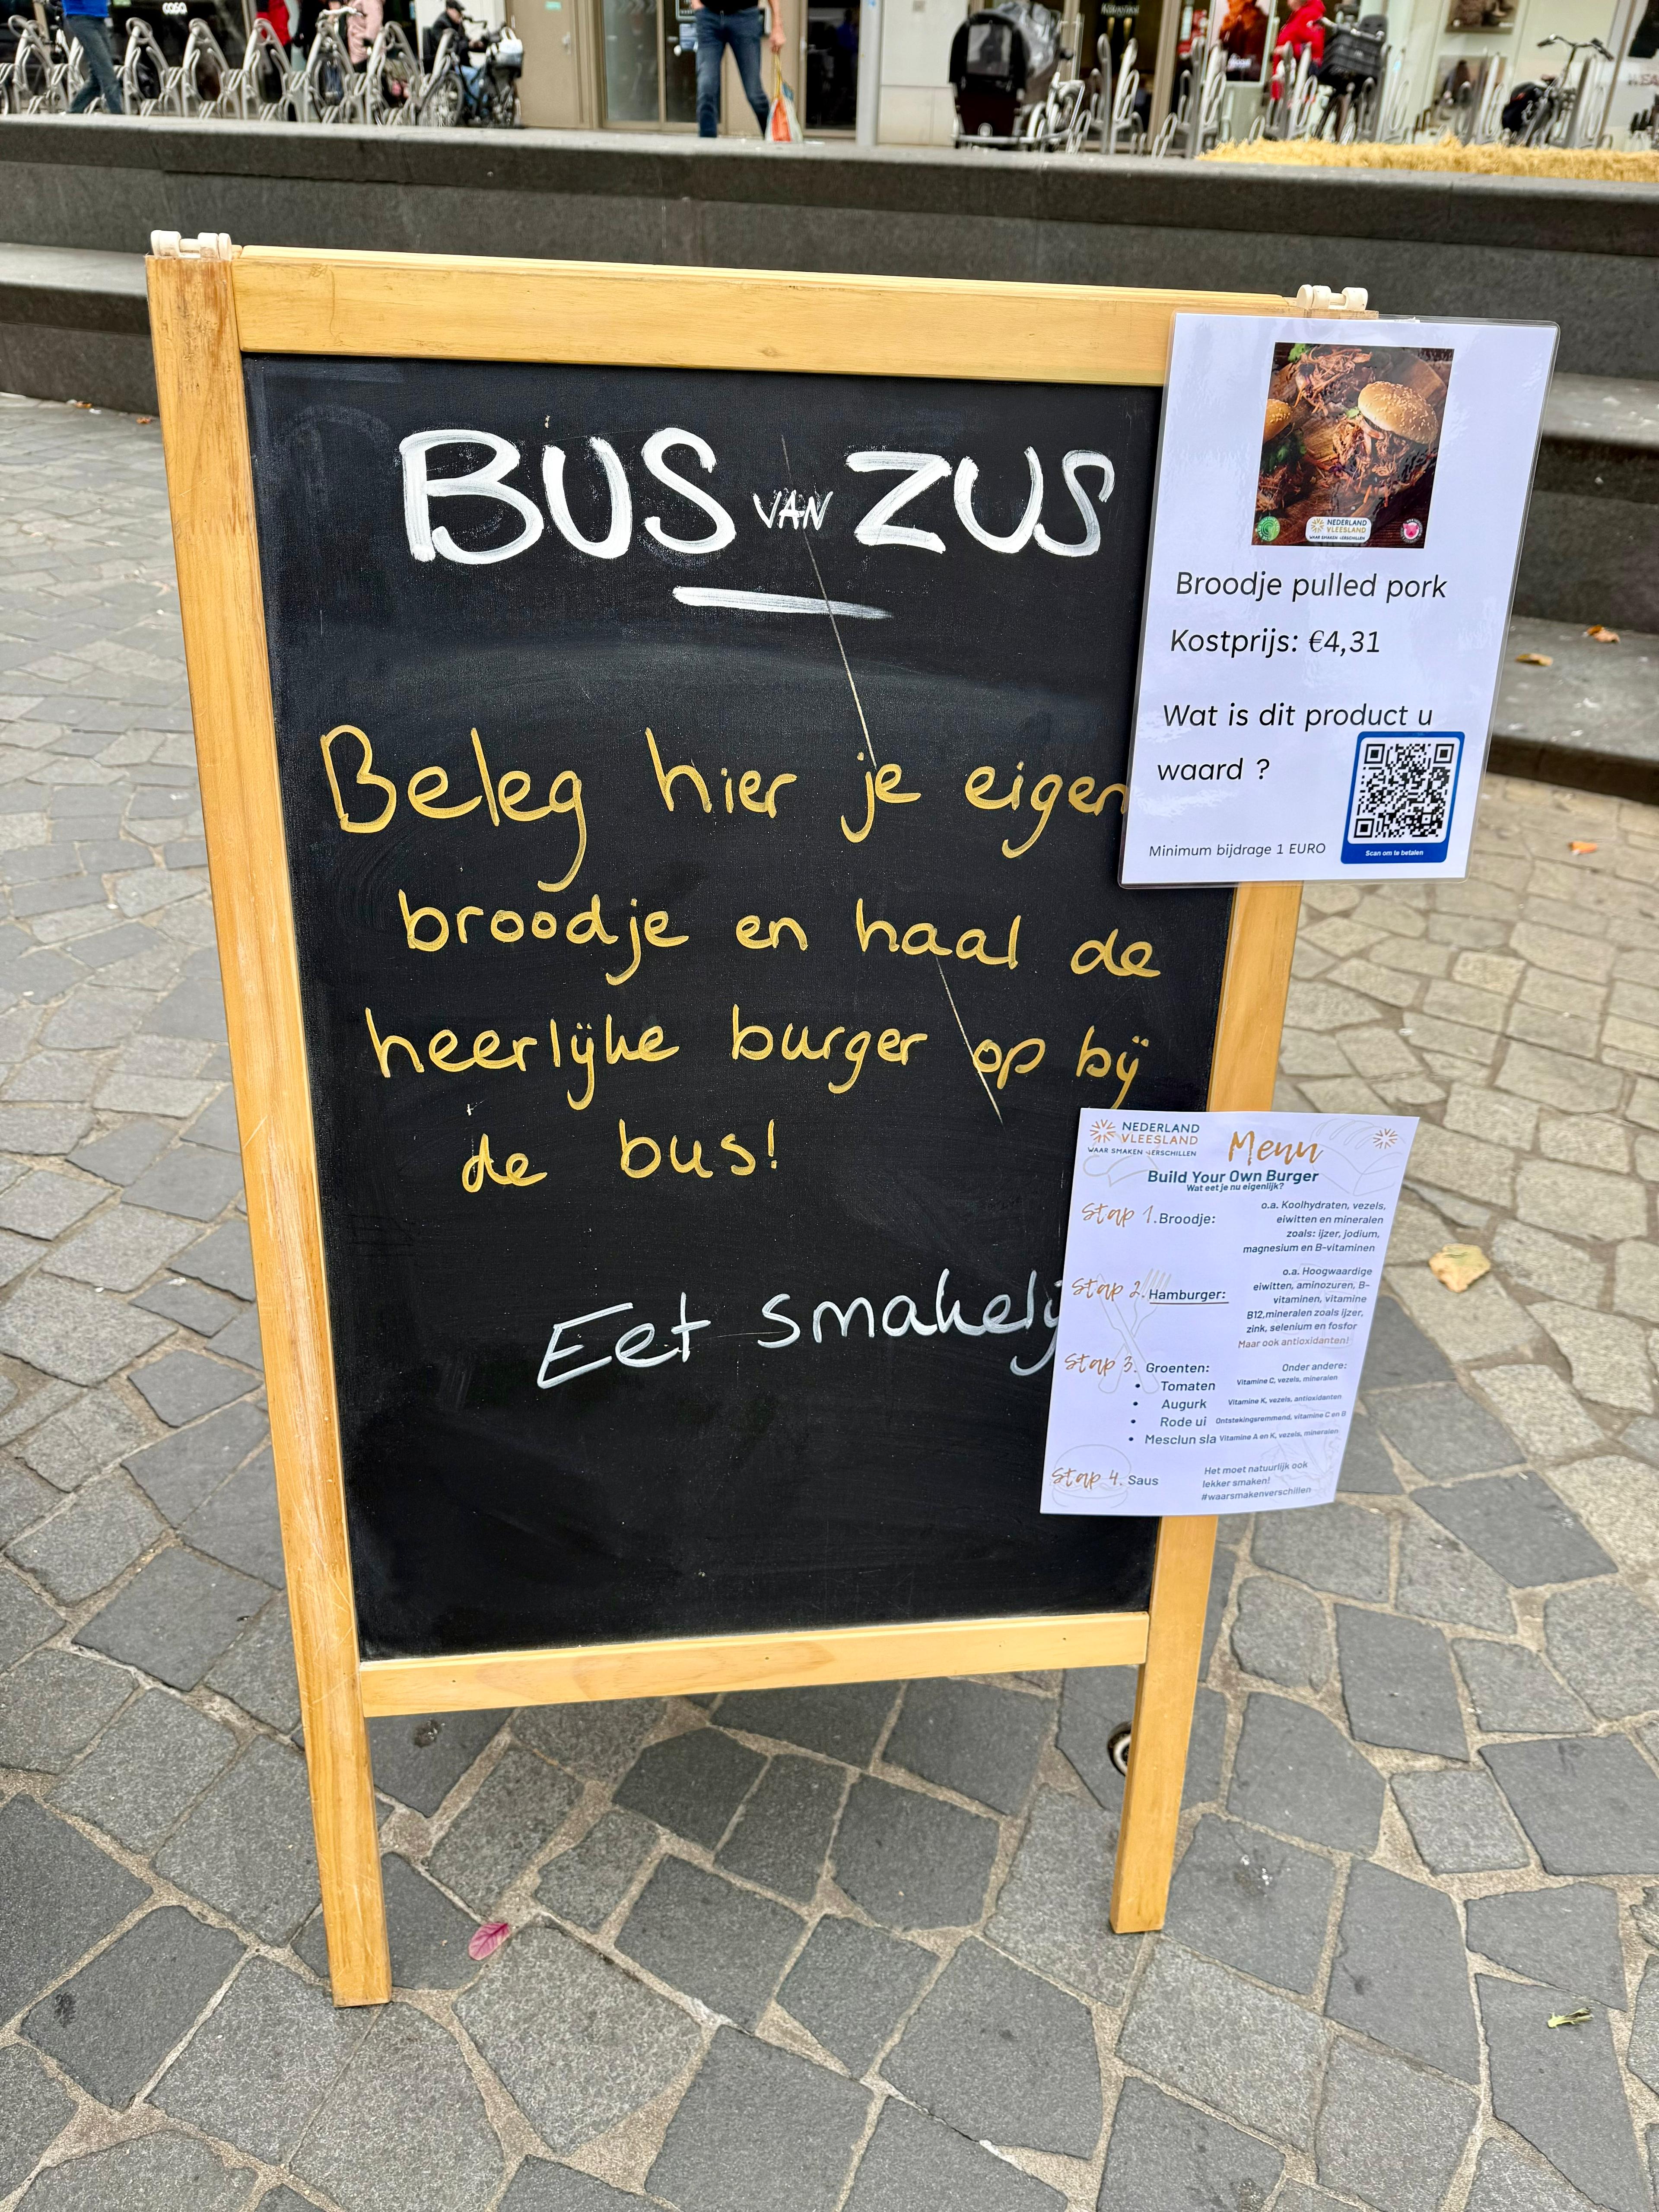 BUS VAN ZUS
Beleg hier je eigen
broodje en haal de
heerlijke burger op bij
de bus!
Eet smakelij
NEDERLAND
VLEESLAND
WAAR SMAKEN VERSCHILLEN
Broodje pulled pork
Kostprijs: €4,31
Wat is dit product u
waard ?
Minimum bijdrage 1 EURO
Scan om te betalen
NEDERLAND
VLEESLAND
WAAR SMAKEN VERSCHILLEN
Menu
Build Your Own Burger
Wat eet je nu eigenlijk?
Stap 1. Broodje:
o.a. Koolhydraten, vezels,
eiwitten en mineralen
zoals: ijzer, jodium,
magnesium en B-vitaminen
Stap 2. Hamburger:
o.a. Hoogwaardige
eiwitten, aminozuren, B-
vitaminen, vitamine
B12,mineralen zoals ijzer,
zink, selenium en fosfor
Maar ook antioxidanten!
Stap 3. Groenten: Onder andere:
• Tomaten Vitamine C, vezels, mineralen
• Augurk Vitamine K, vezels, antioxidanten
• Rode ui Ontstekingsremmend, vitamine C en B
• Mesclun sla Vitamine A en K, vezels, mineralen
Stap 4. Saus
Het moet natuurlijk ook
lekker smaken!
#waarsmakenverschillen